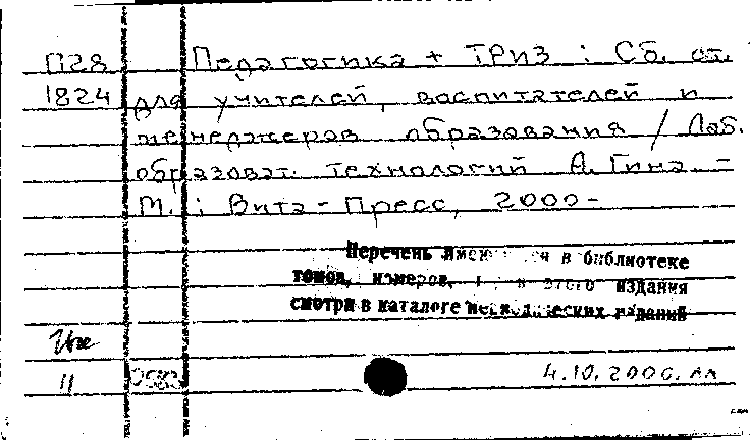 П28 Педагогика + ТРИЗ : Сб. ст.
1824 для учителей, воспитателей и
менеджеров образования / Лаб.
образоват. технологий А. Гина. –
М. : Вита-Пресс, 2000-
Перечень имеющихся в библиотеке
томов, номеров, этого издания
смотри в каталоге периодических изданий
11 4.10.2000.